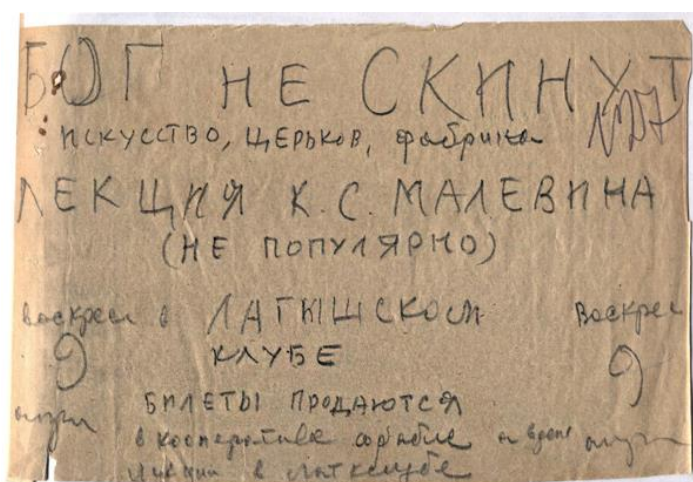 БОГ НЕ СКИНУТ
ИСКУССТВО, ЦЕРЬКОВ, фабрика
ЛЕКЦИЯ К. С. МАЛЕВИЧА
(НЕ ПОПУЛЯРНО)
Воскрес в ЛАТЫШСКОМ Воскрес
9 КЛУБЕ 9
БИЛЕТЫ ПРОДАЮТСЯ
в кооперативе и время
лекции в латклубе